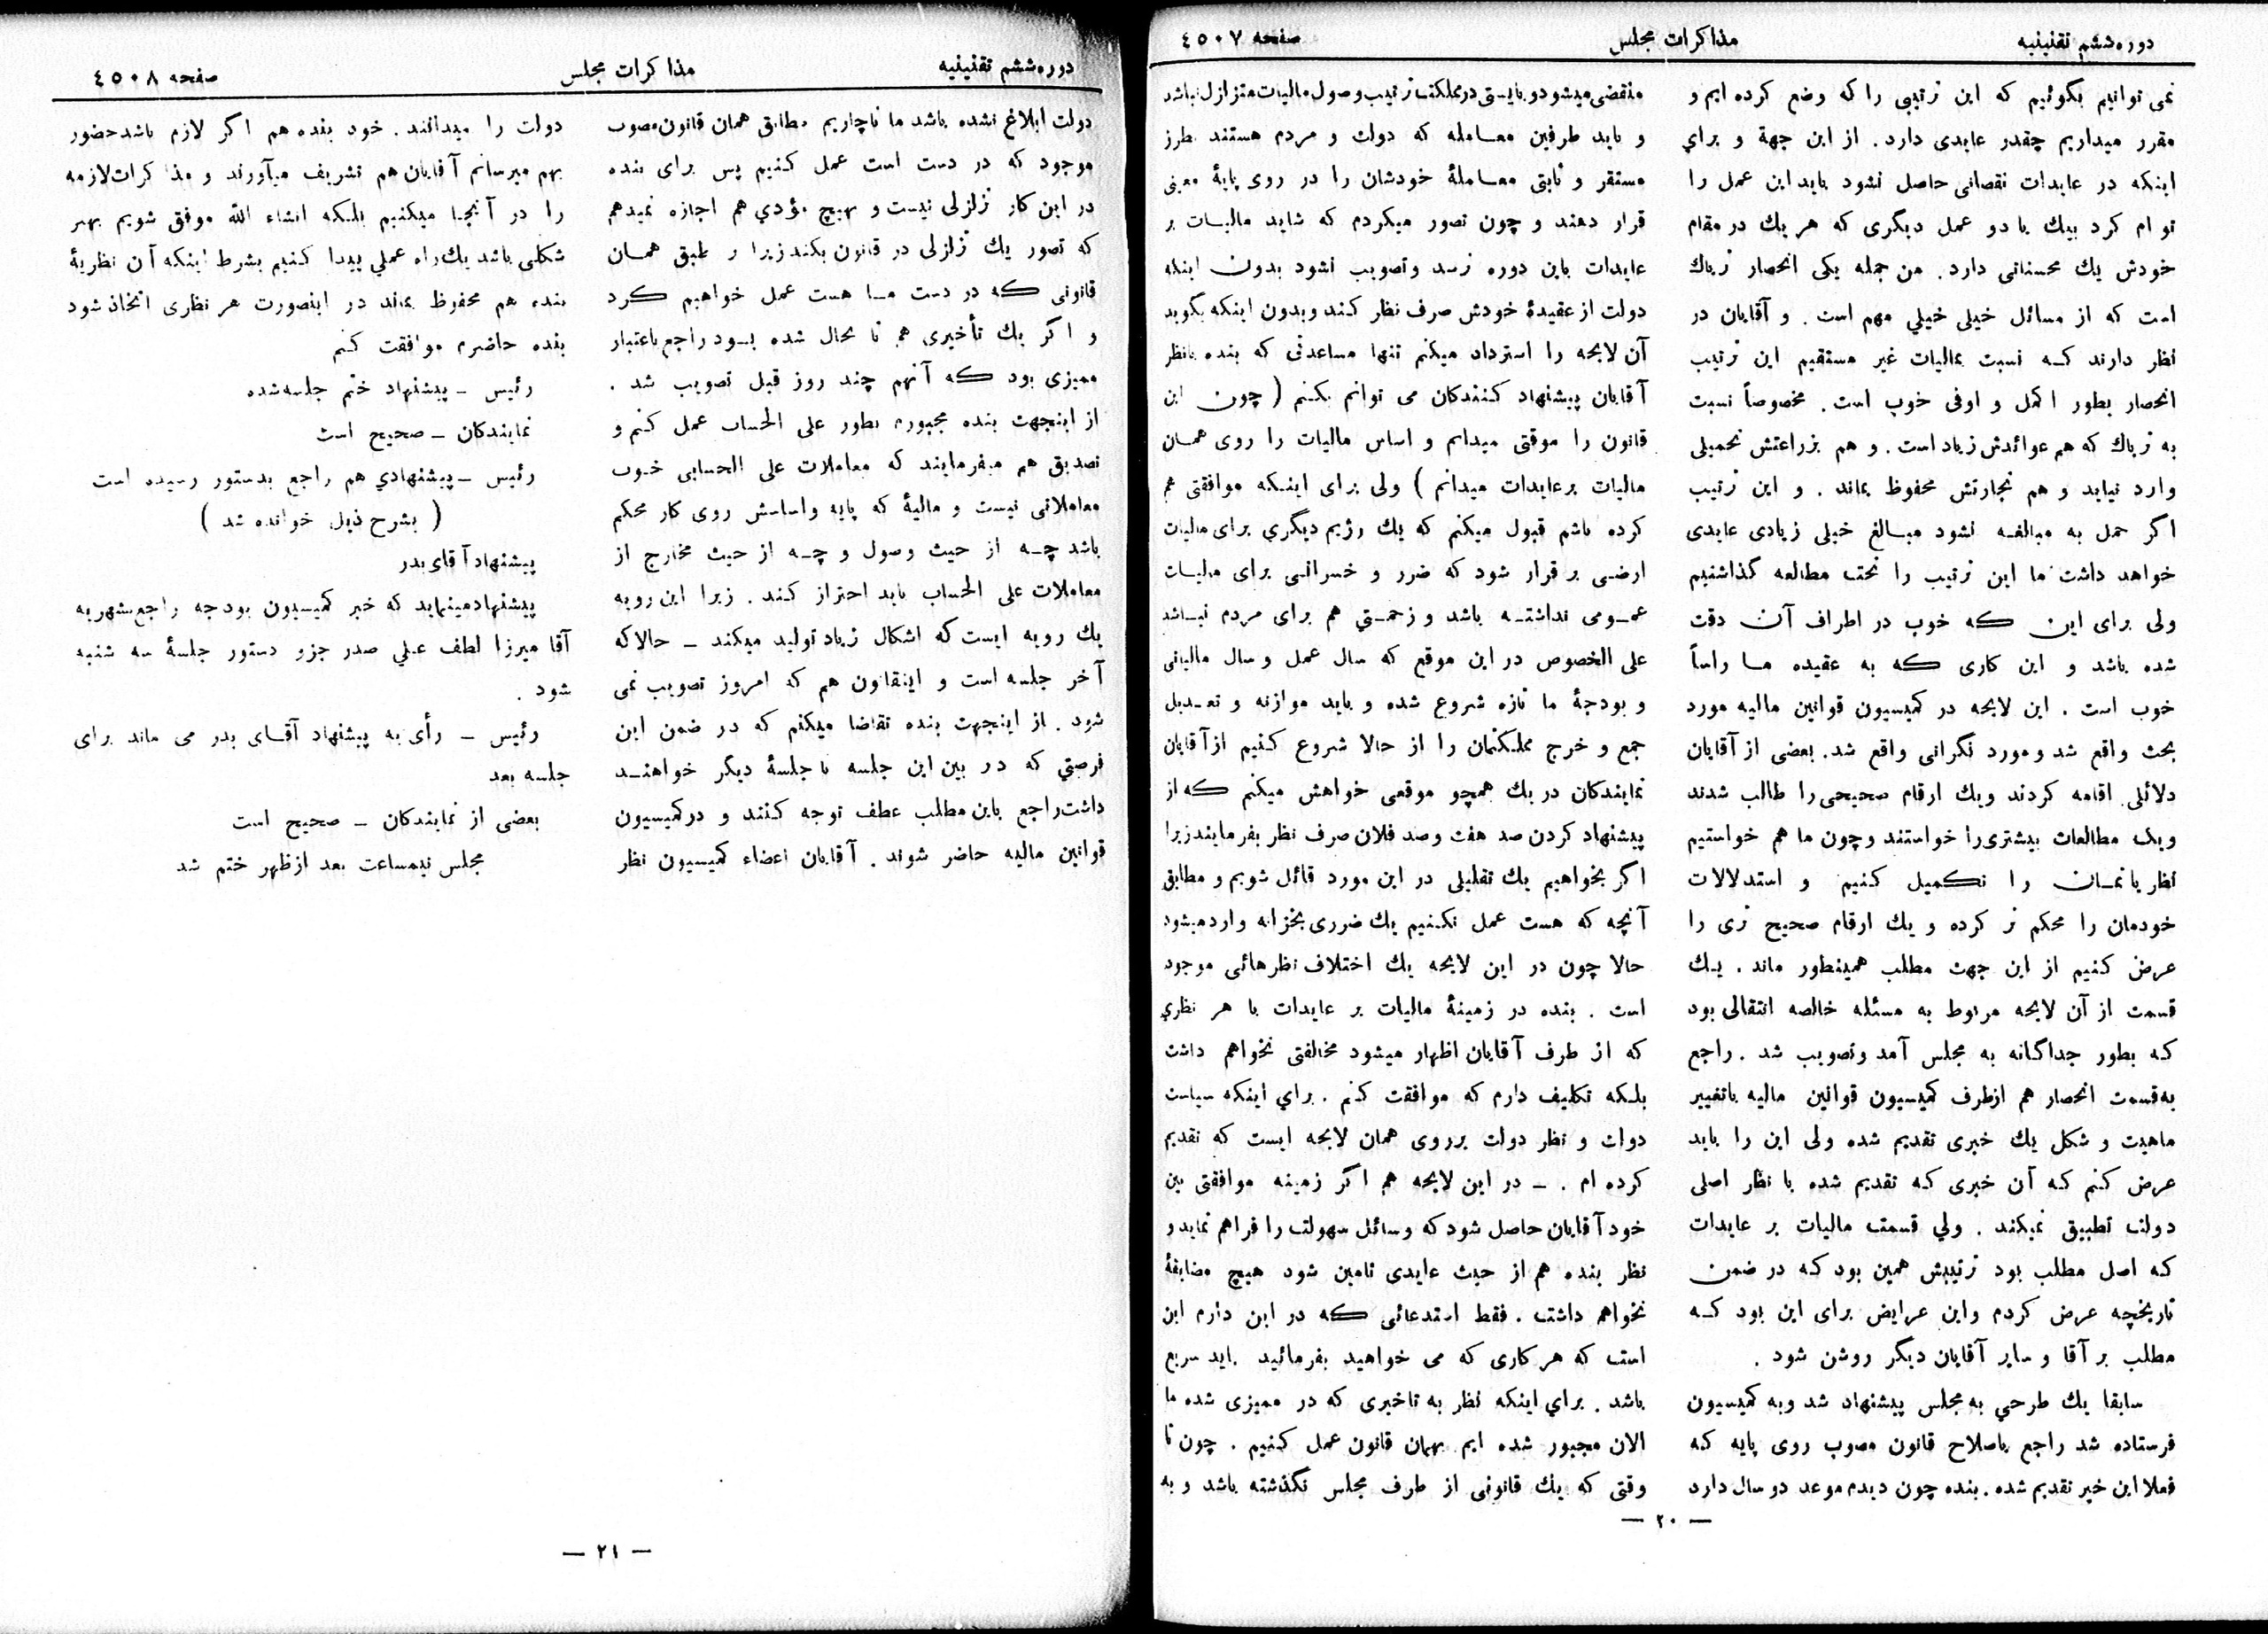 دوره‌ششم تقنینیه
مذاکرات مجلس
صفحه ٤٥٠٧
نمی توانیم بگوئیم که این ترتیبی را که وضع کرده ایم و
مقرر میداریم چقدر عایدی دارد. از این جهة و برای
اینکه در عایدات نقصانی حاصل نشود باید این عمل را
توام کرد بیك یا دو عمل دیگری که هر یك در مقام
خودش یك محسناتی دارد. من جمله یکی انحصار تریاك
است که از مسائل خیلی خیلی مهم است. و آقایان در
نظر دارند که نسبت بمالیات غیر مستقیم این ترتیب
انحصار بطور اکمل و اوفی خوب است. مخصوصاً نسبت
به تریاك که هم عوائدش زیاد است. و هم بزراعتش تحمیلی
وارد نیاید و هم تجارتش محفوظ بماند. و این ترتیب
اگر حمل به مبالغه نشود مبالغ خیلی زیادی عایدی
خواهد داشت ما این ترتیب را تحت مطالعه گذاشتیم
ولی برای این که خوب در اطراف آن دقت
شده باشد و این کاری که به عقیده ما راساً
خوب است. این لایحه در کمیسیون قوانین مالیه مورد
بحث واقع شد و مورد نگرانی واقع شد. بعضی از آقایان
دلائلی اقامه کردند ویك ارقام صحیحی را طالب شدند
ویك مطالعات بیشتری را خواستند و چون ما هم خواستیم
نظریاتمان را تکمیل کنیم و استدلالات
خودمان را محکم تر کرده و یك ارقام صحیح تری را
عرض کنیم از این جهت مطلب همینطور ماند. یك
قسمت از آن لایحه مربوط به مسئله خالصه انتقالی بود
که بطور جداگانه به مجلس آمد وتصویب شد. راجع
به‌قسمت انحصار هم ازطرف کمیسیون قوانین مالیه باتغییر
ماهیت و شکل یك خبری تقدیم شده ولی این را باید
عرض کنم که آن خبری که تقدیم شده با نظر اصلی
دولت تطبیق نمیکند. ولي قسمت مالیات بر عایدات
که اصل مطلب بود ترتیبش همین بود که در ضمن
تاریخچه عرض کردم واین عرایض برای این بود که
مطلب بر آقا و سایر آقایان دیگر روشن شود.
سابقا یك طرحي به مجلس پیشنهاد شد وبه کمیسیون
فرستاده شد راجع باصلاح قانون مصوب روی پایه که
فعلا این خبر تقدیم شده. بنده چون دیدم موعد دو سال دارد
منقضی میشود و بایستی در مملکت ترتیب وصول مالیات متزازل نباشد
و باید طرفین معامله که دولت و مردم هستند طرز
مستقر و ثابتی معاملهٔ خودشان را در روی پایهٔ معینی
قرار دهند و چون تصور میکردم که شاید مالیات بر
عایدات باین دوره نرسد وتصویب نشود بدون اینکه
دولت از عقیدهٔ خودش صرف نظر کند وبدون اینکه بگوید
آن لایحه را استرداد میکنم تنها مساعدتی که بنده بانظر
آقایان پیشنهاد کنندکان می توانم بکنم (چون این
قانون را موقتی میدانم و اساس مالیات را روی همان
مالیات برعایدات میدانم) ولی برای اینکه موافقتی هم
کرده باشم قبول میکنم که یك رژیم دیگری برای مالیات
ارضی برقرار شود که ضرر و خسرانی برای مالیات
عمومی نداشته باشد و زحمتي هم برای مردم نباشد
علی الخصوص در این موقع که سال عمل و سال مالیاتی
و بودجهٔ ما تازه شروع شده و باید موازنه و تعدیل
جمع و خرج مملکتمان را از حالا شروع کنیم از آقایان
نمایندکان در یك همچو موقعی خواهش میکنم که از
پیشنهاد کردن صد هفت وصد فلان صرف نظر بفرمایند زیرا
اگر بخواهیم یك تقلیلی در این مورد قائل شویم و مطابق
آنچه که هست عمل نکنیم یك ضرری بخزانه وارد میشود
حالا چون در این لایحه یك اختلاف نظرهائی موجود
است. بنده در زمینهٔ مالیات بر عایدات با هر نظري
که از طرف آقایان اظهار میشود مخالفتی نخواهم داشت
بلکه تکلیف دارم که موافقت کنم. براي اینکه سیاست
دولت و نظر دولت برروی همان لایحه ایست که تقدیم
کرده ام. ــ در این لایحه هم اگر زمینه موافقتی بین
خود آقایان حاصل شود که وسائل سهولت را فراهم نماید و
نظر بنده هم از حیث عایدی تامین شود هیچ مضایقهٔ
نخواهم داشت. فقط استدعائی که در این دارم این
است که هر کاری که می خواهید بفرمائید باید سریع
باشد. براي اینکه نظر به تاخیری که در ممیزی شده ما
الان مجبور شده ایم بهمان قانون عمل کنیم. چون تا
وقتی که یك قانونی از طرف مجلس نگذشته باشد و به
— ٢٠ —
دوره‌ششم تقنینیه
مذاکرات مجلس
صفحه ٤٥٠٨
دولت ابلاغ نشده باشد ما ناچاریم مطابق همان قانون مصوب
موجود که در دست است عمل کنیم پس برای بنده
در این کار تزلزلی نیست و بهیچ مؤدي هم اجازه نمیدهم
که تصور یك تزلزلی در قانون بکند زیرا بر طبق همان
قانونی که در دست ما هست عمل خواهیم کرد
و اگر یك تأخیری هم تا بحال شده بود راجع باعتبار
ممیزی بود که آنهم چند روز قبل تصویب شد.
از اینجهت بنده مجبورم بطور علی الحساب عمل کنم و
تصدیق هم میفرمایند که معاملات علی الحسابی خوب
معاملاتی نیست و مالیهٔ که پایه و اساسش روی کار محکم
باشد چه از حیث وصول و چه از حیث مخارج از
معاملات علی الحساب باید احتراز کند. زیرا این رویه
یك رویه ایست که اشکال زیاد تولید میکند ــ حالا که
آخر جلسه است و اینقانون هم که امروز تصویب نمی
شود. از اینجهت بنده تقاضا میکنم که در ضمن این
فرصتي که در بین این جلسه تا جلسهٔ دیگر خواهند
داشت راجع باین مطلب عطف توجه کنند و در کمیسیون
قوانین مالیه حاضر شوند. آقایان اعضاء کمیسیون نظر
دولت را میدانند. خود بنده هم اگر لازم باشد حضور
بهم میرسانم آقایان هم تشریف میآورند و مذاکرات لازمه
را در آنجا میکنیم بلکه انشاء الله موفق شویم بهر
شکلی باشد یك راه عملی پیدا کنیم بشرط اینکه آن نظریهٔ
بنده هم محفوظ بماند در اینصورت هر نظری اتخاذ شود
بنده حاضرم موافقت کنم
رئیس ــ پیشنهاد ختم جلسه شده
نمایندکان ــ صحیح است
رئیس ــ پیشنهادي هم راجع بدستور رسیده است
(بشرح ذیل خوانده شد)
پیشنهاد آقای بدر
پیشنهاد مینماید که خبر کمیسیون بودجه راجع بشهریه
آقا میرزا لطف علي صدر جزو دستور جلسهٔ سه شنبه
شود.
رئیس ــ رأی به پیشنهاد آقای بدر می ماند برای
جلسه بعد
بعضی از نمایندکان ــ صحیح است
مجلس نیمساعت بعد از ظهر ختم شد
— ٢١ —